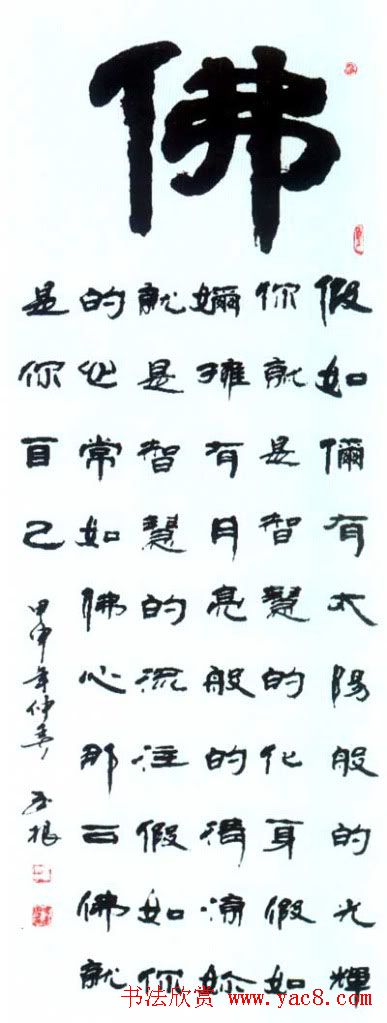 佛
假如儞有太陽般的光輝
你就是智慧的化身假如
嬭擁有月亮般的妳
就是智慧的流注假如你
的心常如佛心那佛就
是你自己
甲申年仲春
书法欣赏 www.yac8.com